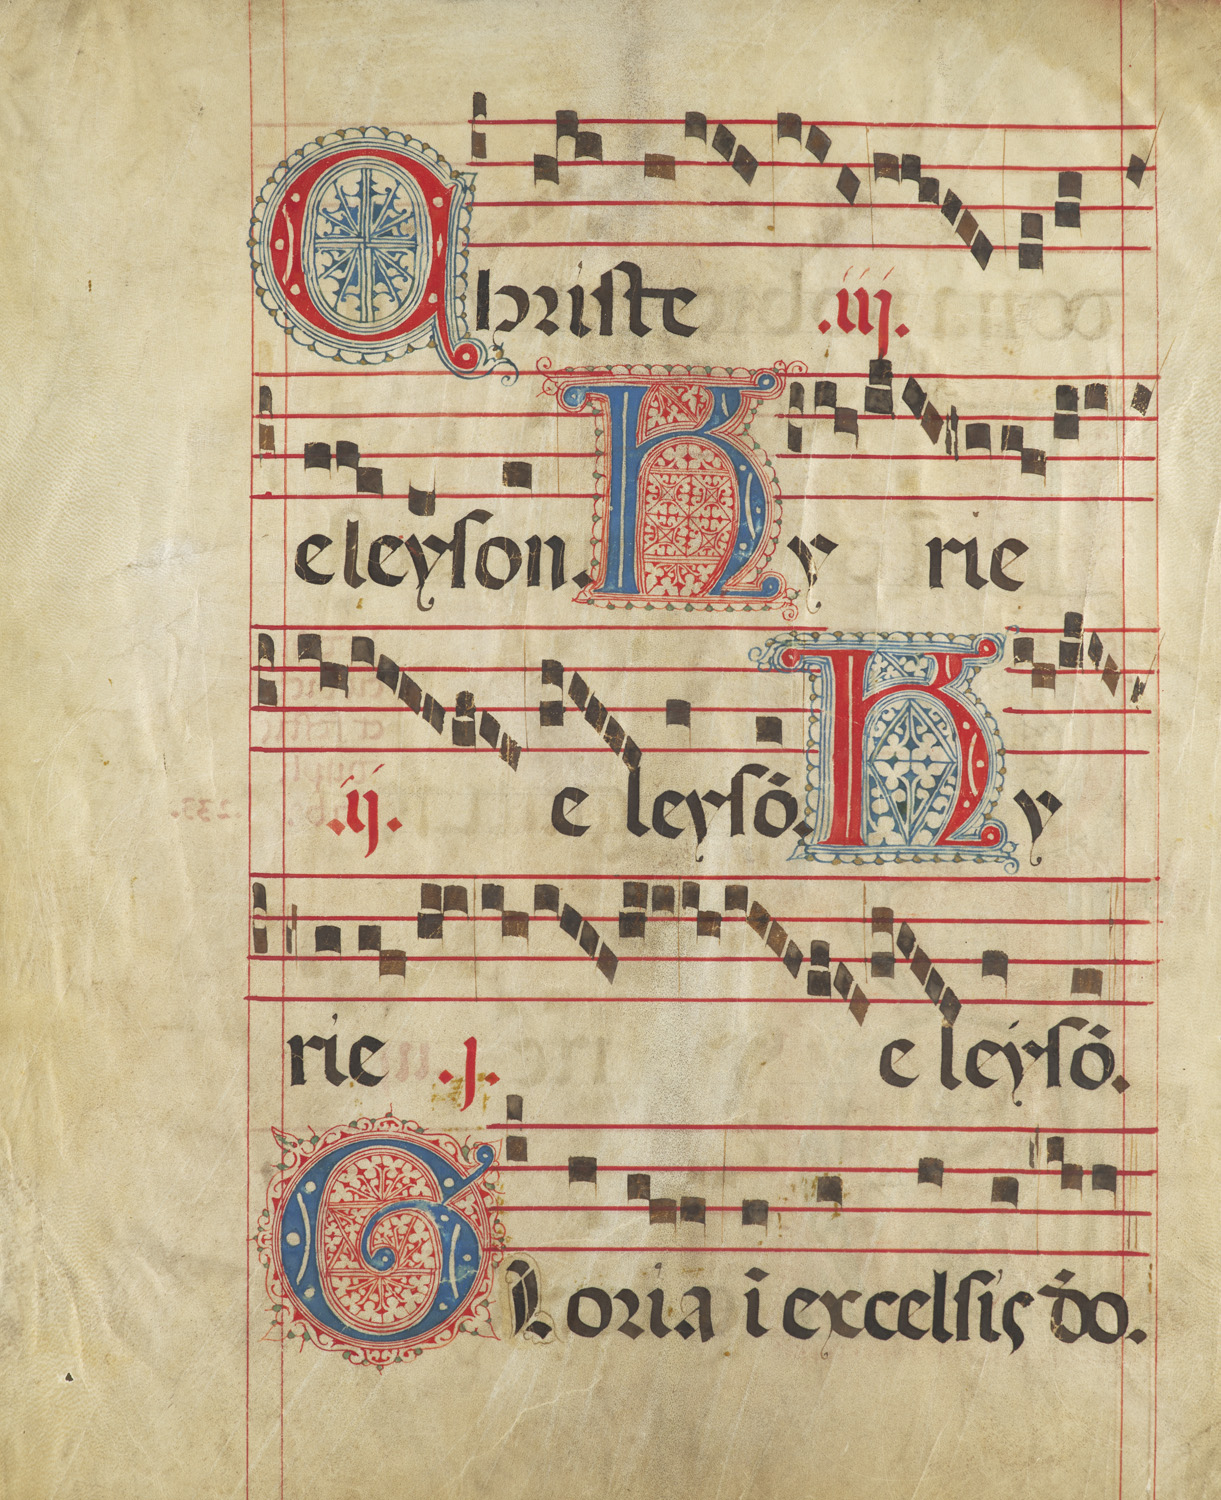 Christe .iij.
eleyson. Ky rie
.ij. e leysō. Ky
rie .j. e leysō.
Gloria ī excelsis dō.